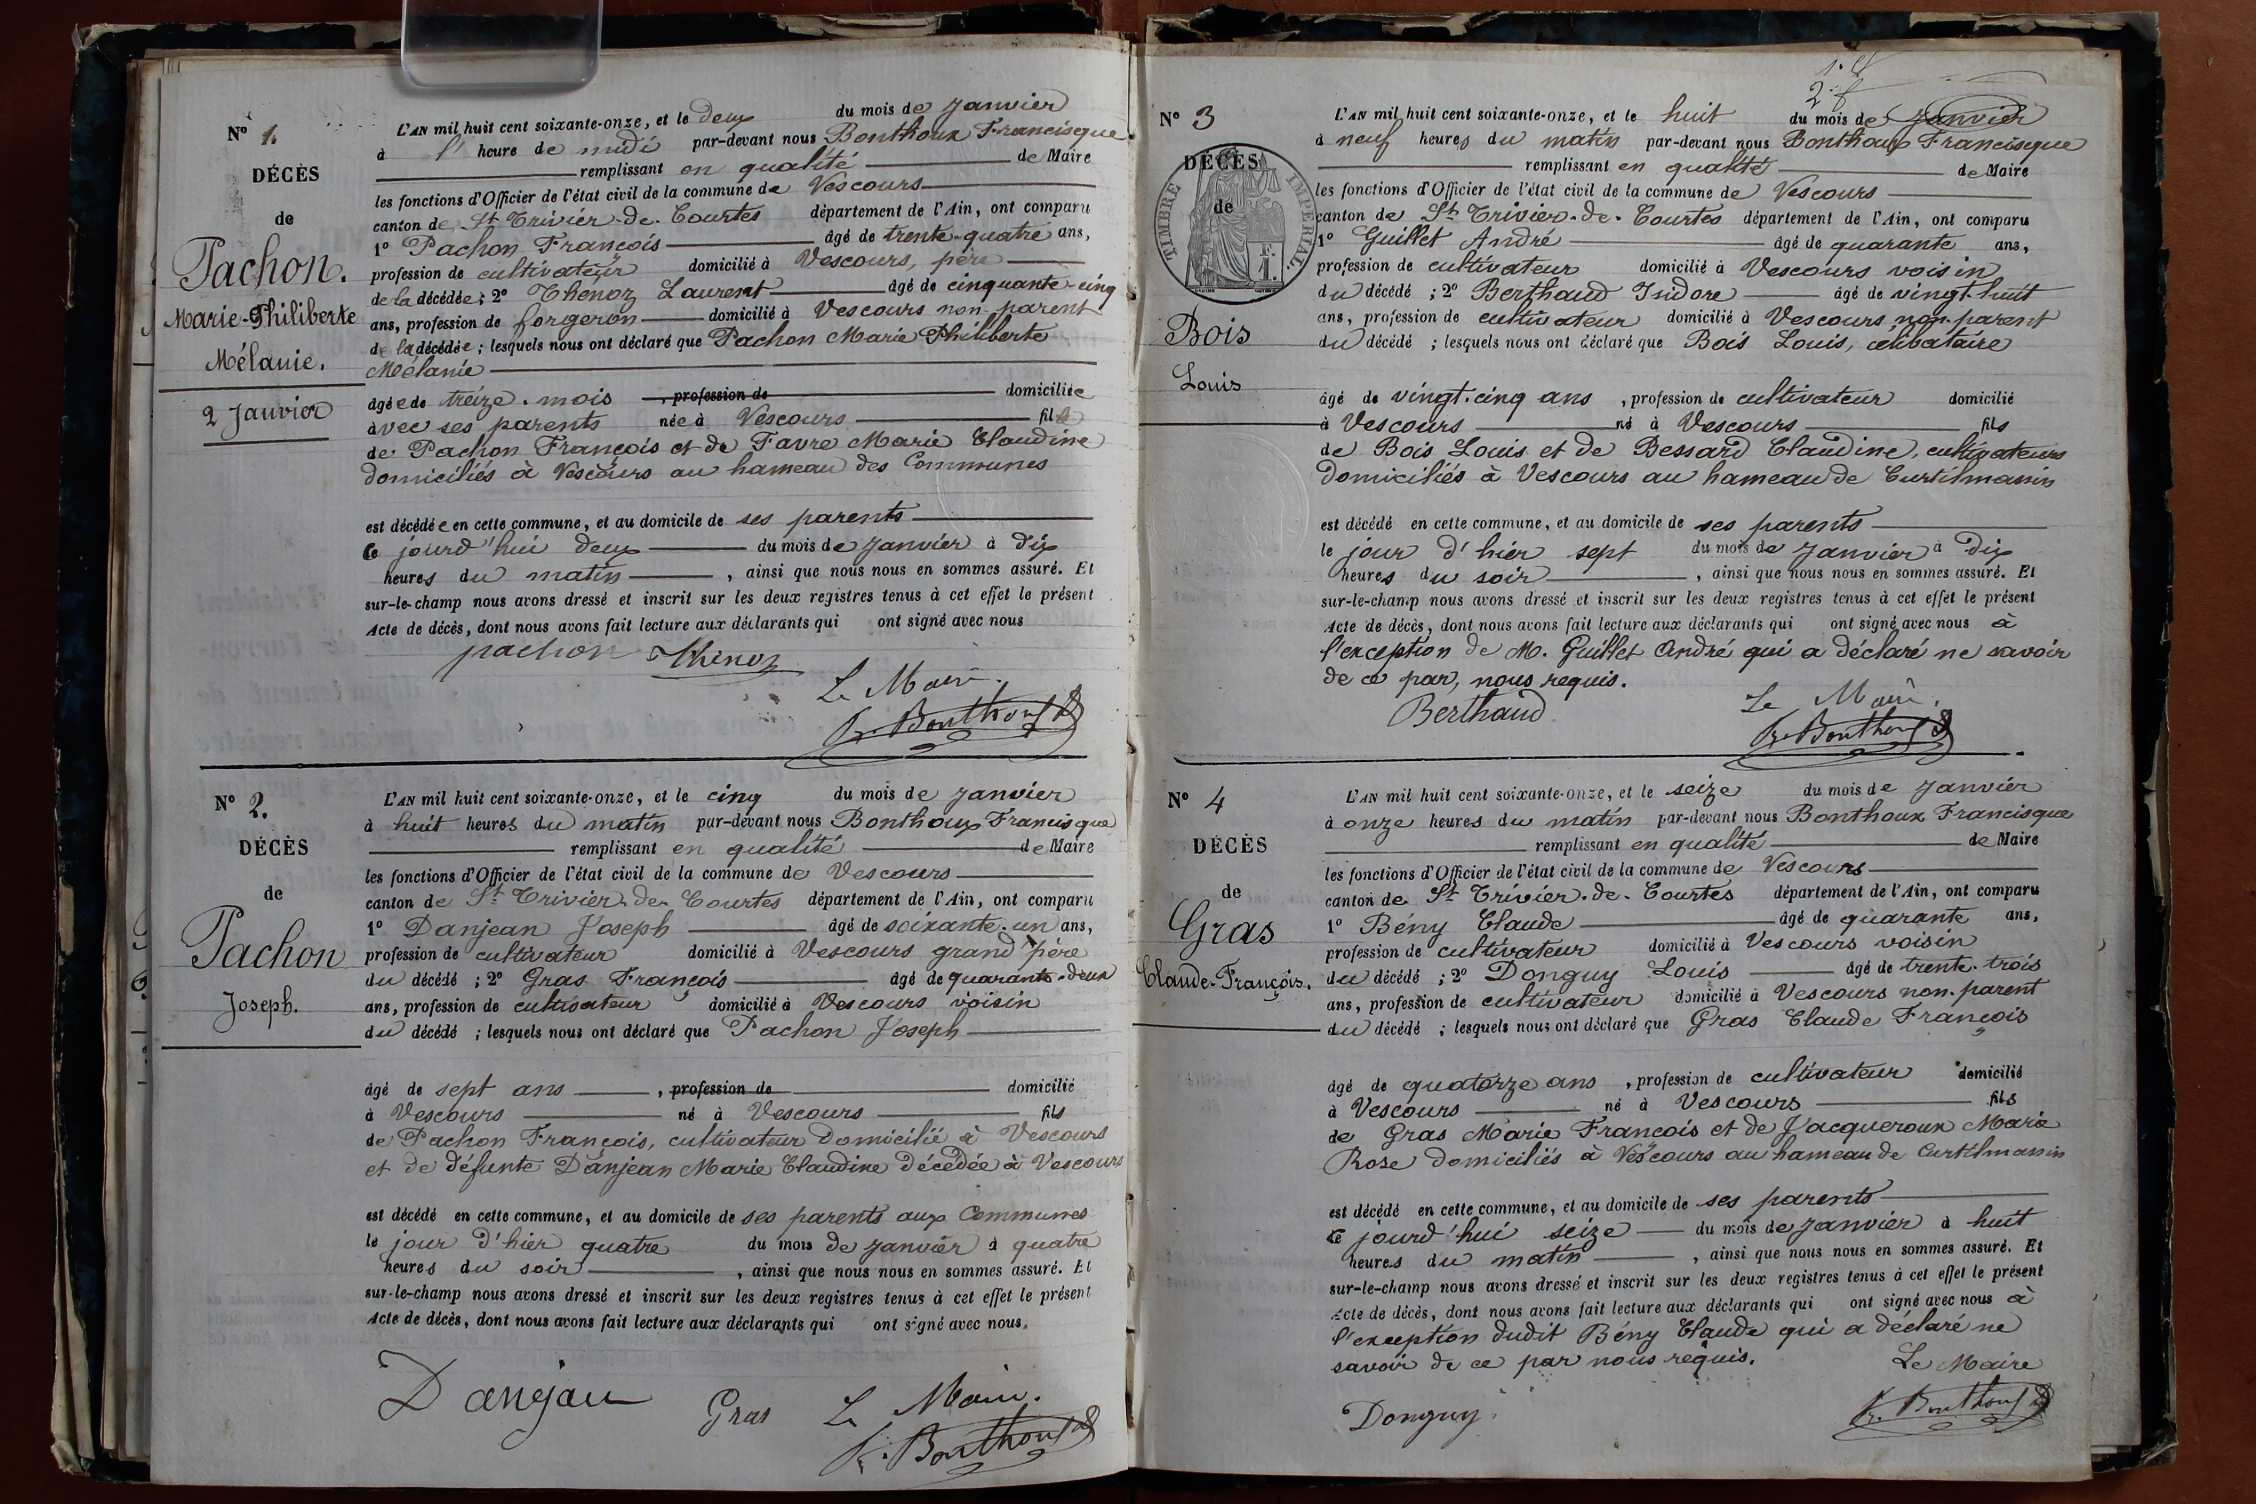 N° 1.
DÉCÈS
de
Pachon.
Marie-Philiberte
Mélanie.
2 Janvier
L'AN mil huit cent soixante-onze, et le deux du mois de Janvier
à l' heure de midi par-devant nous Bonthoux Francisque
remplissant en qualité de Maire
les fonctions d'Officier de l'état civil de la commune de Vescours
canton de St Trivier-de-Courtes département de l'Ain, ont comparu
1° Pachon François âgé de trente-quatre ans,
profession de cultivateur domicilié à Vescours, père
de la décédée ; 2° Thénoz Laurent âgé de cinquante-cinq
ans, profession de forgeron domicilié à Vescours non-parent
de la décédée ; lesquels nous ont déclaré que Pachon Marie Philiberte
Mélanie
âgée de treize mois , profession de domiciliée
avec ses parents née à Vescours fille
de Pachon François et de Favre Marie Claudine
domiciliés à Vescours au hameau des Communes
est décédée en cette commune, et au domicile de ses parents
ce jourd'hui deux du mois de Janvier à dix
heures du matin , ainsi que nous nous en sommes assuré. Et
sur-le-champ nous avons dressé et inscrit sur les deux registres tenus à cet effet le présent
Acte de décès, dont nous avons fait lecture aux déclarants qui ont signé avec nous
pachon Thenoz
Le Maire.
F. Bonthoux
N° 2.
DÉCÈS
de
Pachon
Joseph.
L'AN mil huit cent soixante-onze, et le cinq du mois de Janvier
à huit heures du matin par-devant nous Bonthoux Francisque
remplissant en qualité de Maire
les fonctions d'Officier de l'état civil de la commune de Vescours
canton de St Trivier-de-Courtes département de l'Ain, ont comparu
1° Danjean Joseph âgé de soixante-un ans,
profession de cultivateur domicilié à Vescours grand père
du décédé ; 2° Gras François âgé de quarante-deux
ans, profession de cultivateur domicilié à Vescours voisin
du décédé ; lesquels nous ont déclaré que Pachon Joseph
âgé de sept ans , profession de domicilié
à Vescours né à Vescours fils
de Pachon François, cultivateur domicilié à Vescours
et de défunte Danjean Marie Claudine décédée à Vescours
est décédé en cette commune, et au domicile de ses parents aux Communes
le jour d'hier quatre du mois de Janvier à quatre
heures du soir , ainsi que nous nous en sommes assuré. Et
sur-le-champ nous avons dressé et inscrit sur les deux registres tenus à cet effet le présent
Acte de décès, dont nous avons fait lecture aux déclarants qui ont signé avec nous.
Danjau Gras Le Maire.
F. Bonthoux
N° 3
DÉCÈS
de
TIMBRE IMPERIAL.
F.
1.
Bois
Louis
L'AN mil huit cent soixante-onze, et le huit du mois de Janvier
à neuf heures du matin par-devant nous Bonthoux Francisque
remplissant en qualité de Maire
les fonctions d'Officier de l'état civil de la commune de Vescours
canton de St Trivier-de-Courtes département de l'Ain, ont comparu
1° Guillet André âgé de quarante ans,
profession de cultivateur domicilié à Vescours voisin
du décédé ; 2° Berthaud Isidore âgé de vingt-huit
ans, profession de cultivateur domicilié à Vescours non-parent
du décédé ; lesquels nous ont déclaré que Bois Louis, célibataire
âgé de vingt-cinq ans , profession de cultivateur domicilié
à Vescours né à Vescours fils
de Bois Louis et de Bessard Claudine, cultivateurs
domiciliés à Vescours au hameau de Curtilmassin
est décédé en cette commune, et au domicile de ses parents
le jour d'hier sept du mois de Janvier à dix
heures du soir , ainsi que nous nous en sommes assuré. Et
sur-le-champ nous avons dressé et inscrit sur les deux registres tenus à cet effet le présent
Acte de décès, dont nous avons fait lecture aux déclarants qui ont signé avec nous à
l'exception de M. Guillet André qui a déclaré ne savoir
de ce par, nous requis.
Berthaud Le Maire.
F. Bonthoux
N° 4
DÉCÈS
de
Gras
Claude-François.
L'AN mil huit cent soixante-onze, et le seize du mois de Janvier
à onze heures du matin par-devant nous Bonthoux Francisque
remplissant en qualité de Maire
les fonctions d'Officier de l'état civil de la commune de Vescours
canton de St Trivier-de-Courtes département de l'Ain, ont comparu
1° Bény Claude âgé de quarante ans,
profession de cultivateur domicilié à Vescours voisin
du décédé ; 2° Donguy Louis âgé de trente-trois
ans, profession de cultivateur domicilié à Vescours non-parent
du décédé ; lesquels nous ont déclaré que Gras Claude François
âgé de quatorze ans , profession de cultivateur domicilié
à Vescours né à Vescours fils
de Gras Marie François et de Jacqueroux Marie
Rose domiciliés à Vescours au hameau de Curtilmassin
est décédé en cette commune, et au domicile de ses parents
ce jourd'hui seize du mois de Janvier à huit
heures du matin , ainsi que nous nous en sommes assuré. Et
sur-le-champ nous avons dressé et inscrit sur les deux registres tenus à cet effet le présent
Acte de décès, dont nous avons fait lecture aux déclarants qui ont signé avec nous à
l'exception dudit Bény Claude qui a déclaré ne
savoir de ce par nous requis.
Le Maire
Donguy F. Bonthoux